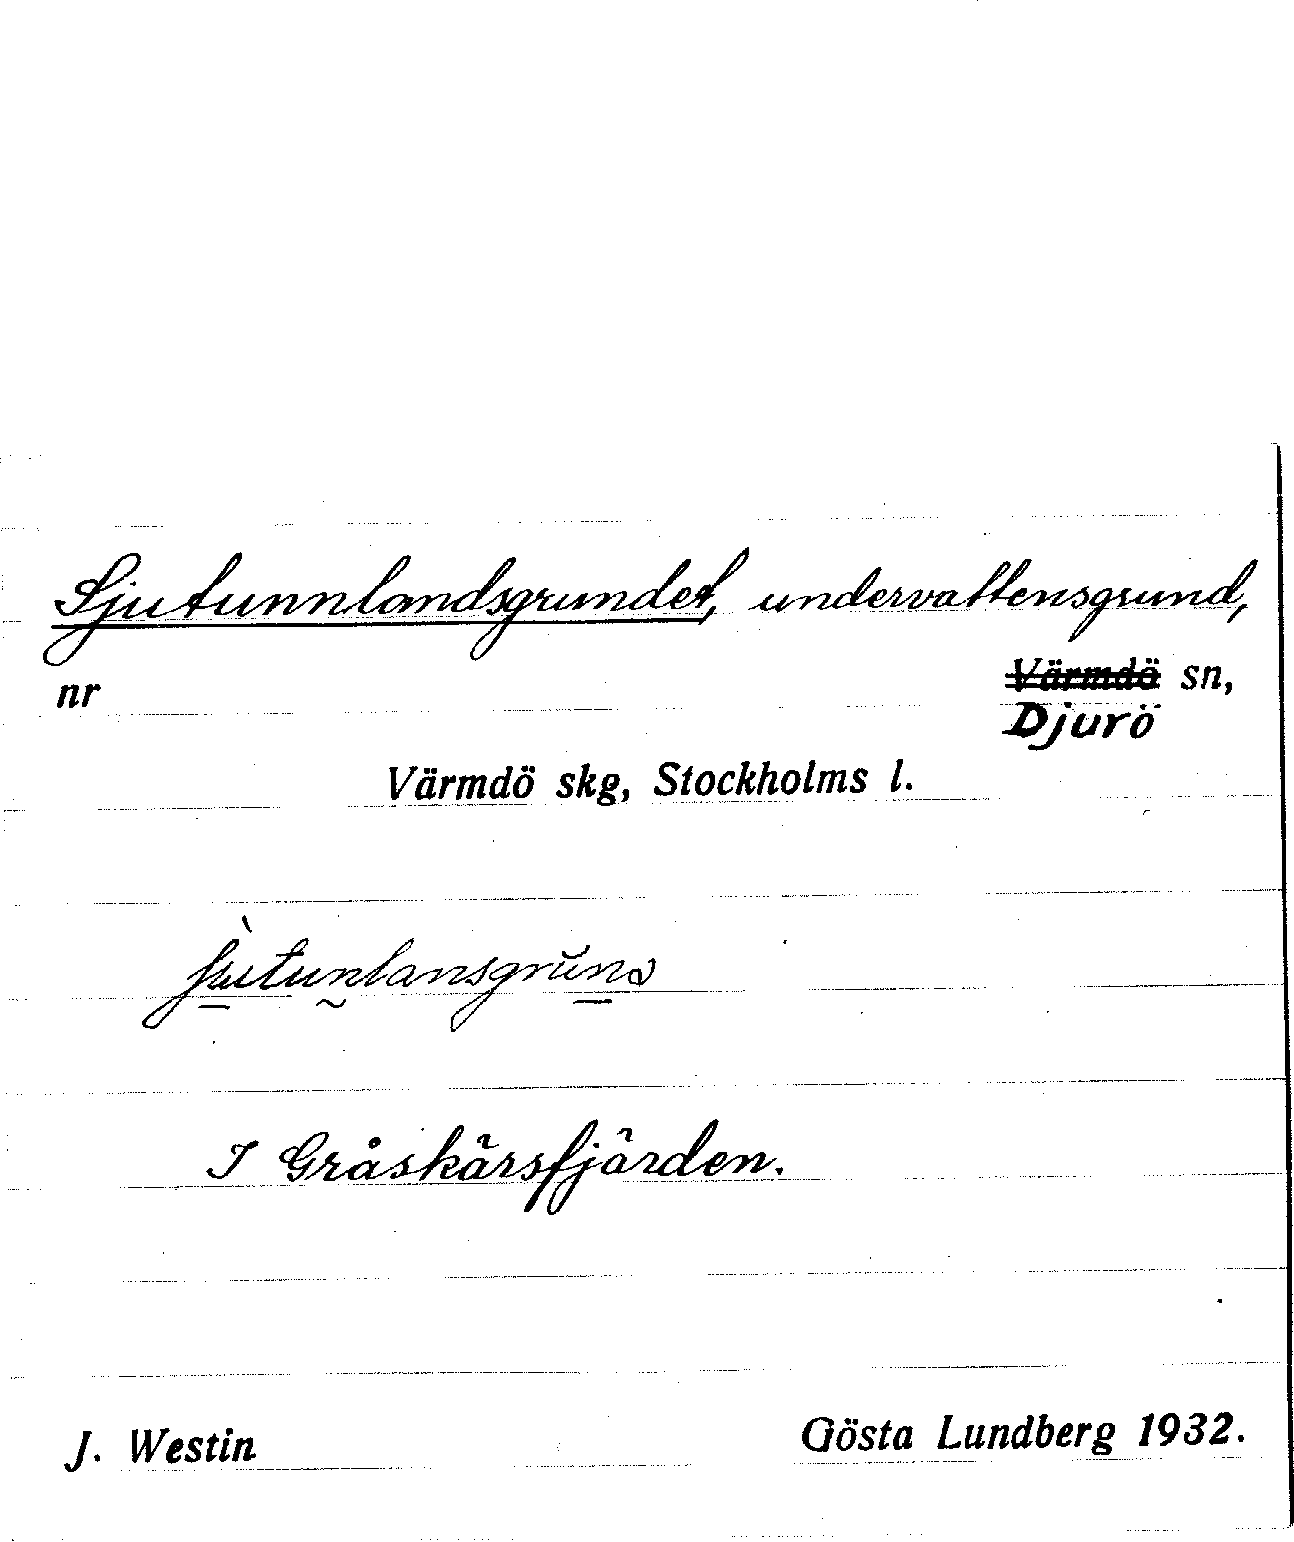 Sjutunnlandsgrundet, undervattensgrund,
nr ~~Värmdö~~ sn,
Djurö
Värmdö skg, Stockholms l.
I Gråskärsfjärden.
J. Westin Gösta Lundberg 1932.